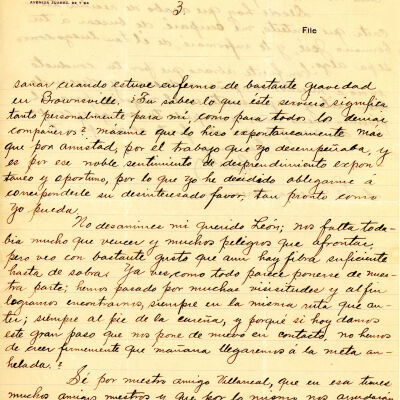 AVENIDA JUAREZ, 92 Y 94
3.
File
sanar cuando estuve enfermo de bastante gravedad
en Brownsville. ¿Tu sabes lo que este servicio significa
tanto personalmente para mí, como para todos los demas
compañeros? maxime que lo hiso expontaneamente mas
que por amistad, por el trabajo que yo desempeñaba, y
es por ese noble sentimiento de desprendimiento expon
taneo y oportuno, por lo que yo he decidido obligarme á
corresponderle su desinteresado favor, tan pronto como
yo pueda.
No desanimes mi querido León; nos falta toda-
bia mucho que vencer y muchos peligros que afrontar,
pero veo con bastante gusto que aun hay fibra suficiente
hasta de sobra. Ya ves, como todo parece ponerse de nues-
tra parte; hemos pasado por muchas visisitudes y al fin
logramos encontrarnos, siempre en la misma ruta que an-
tes; siempre al pie de la cureña, y porqué si hoy damos
este gran paso que nos pone de nuevo en contacto, no hemos
de creer firmemente que mañana llegaremos á la meta an-
helada.?
Sé por nuestro amigo Villarreal, que en esa tienes
muchos amigos nuestros y que por lo mismo nos ayudarán